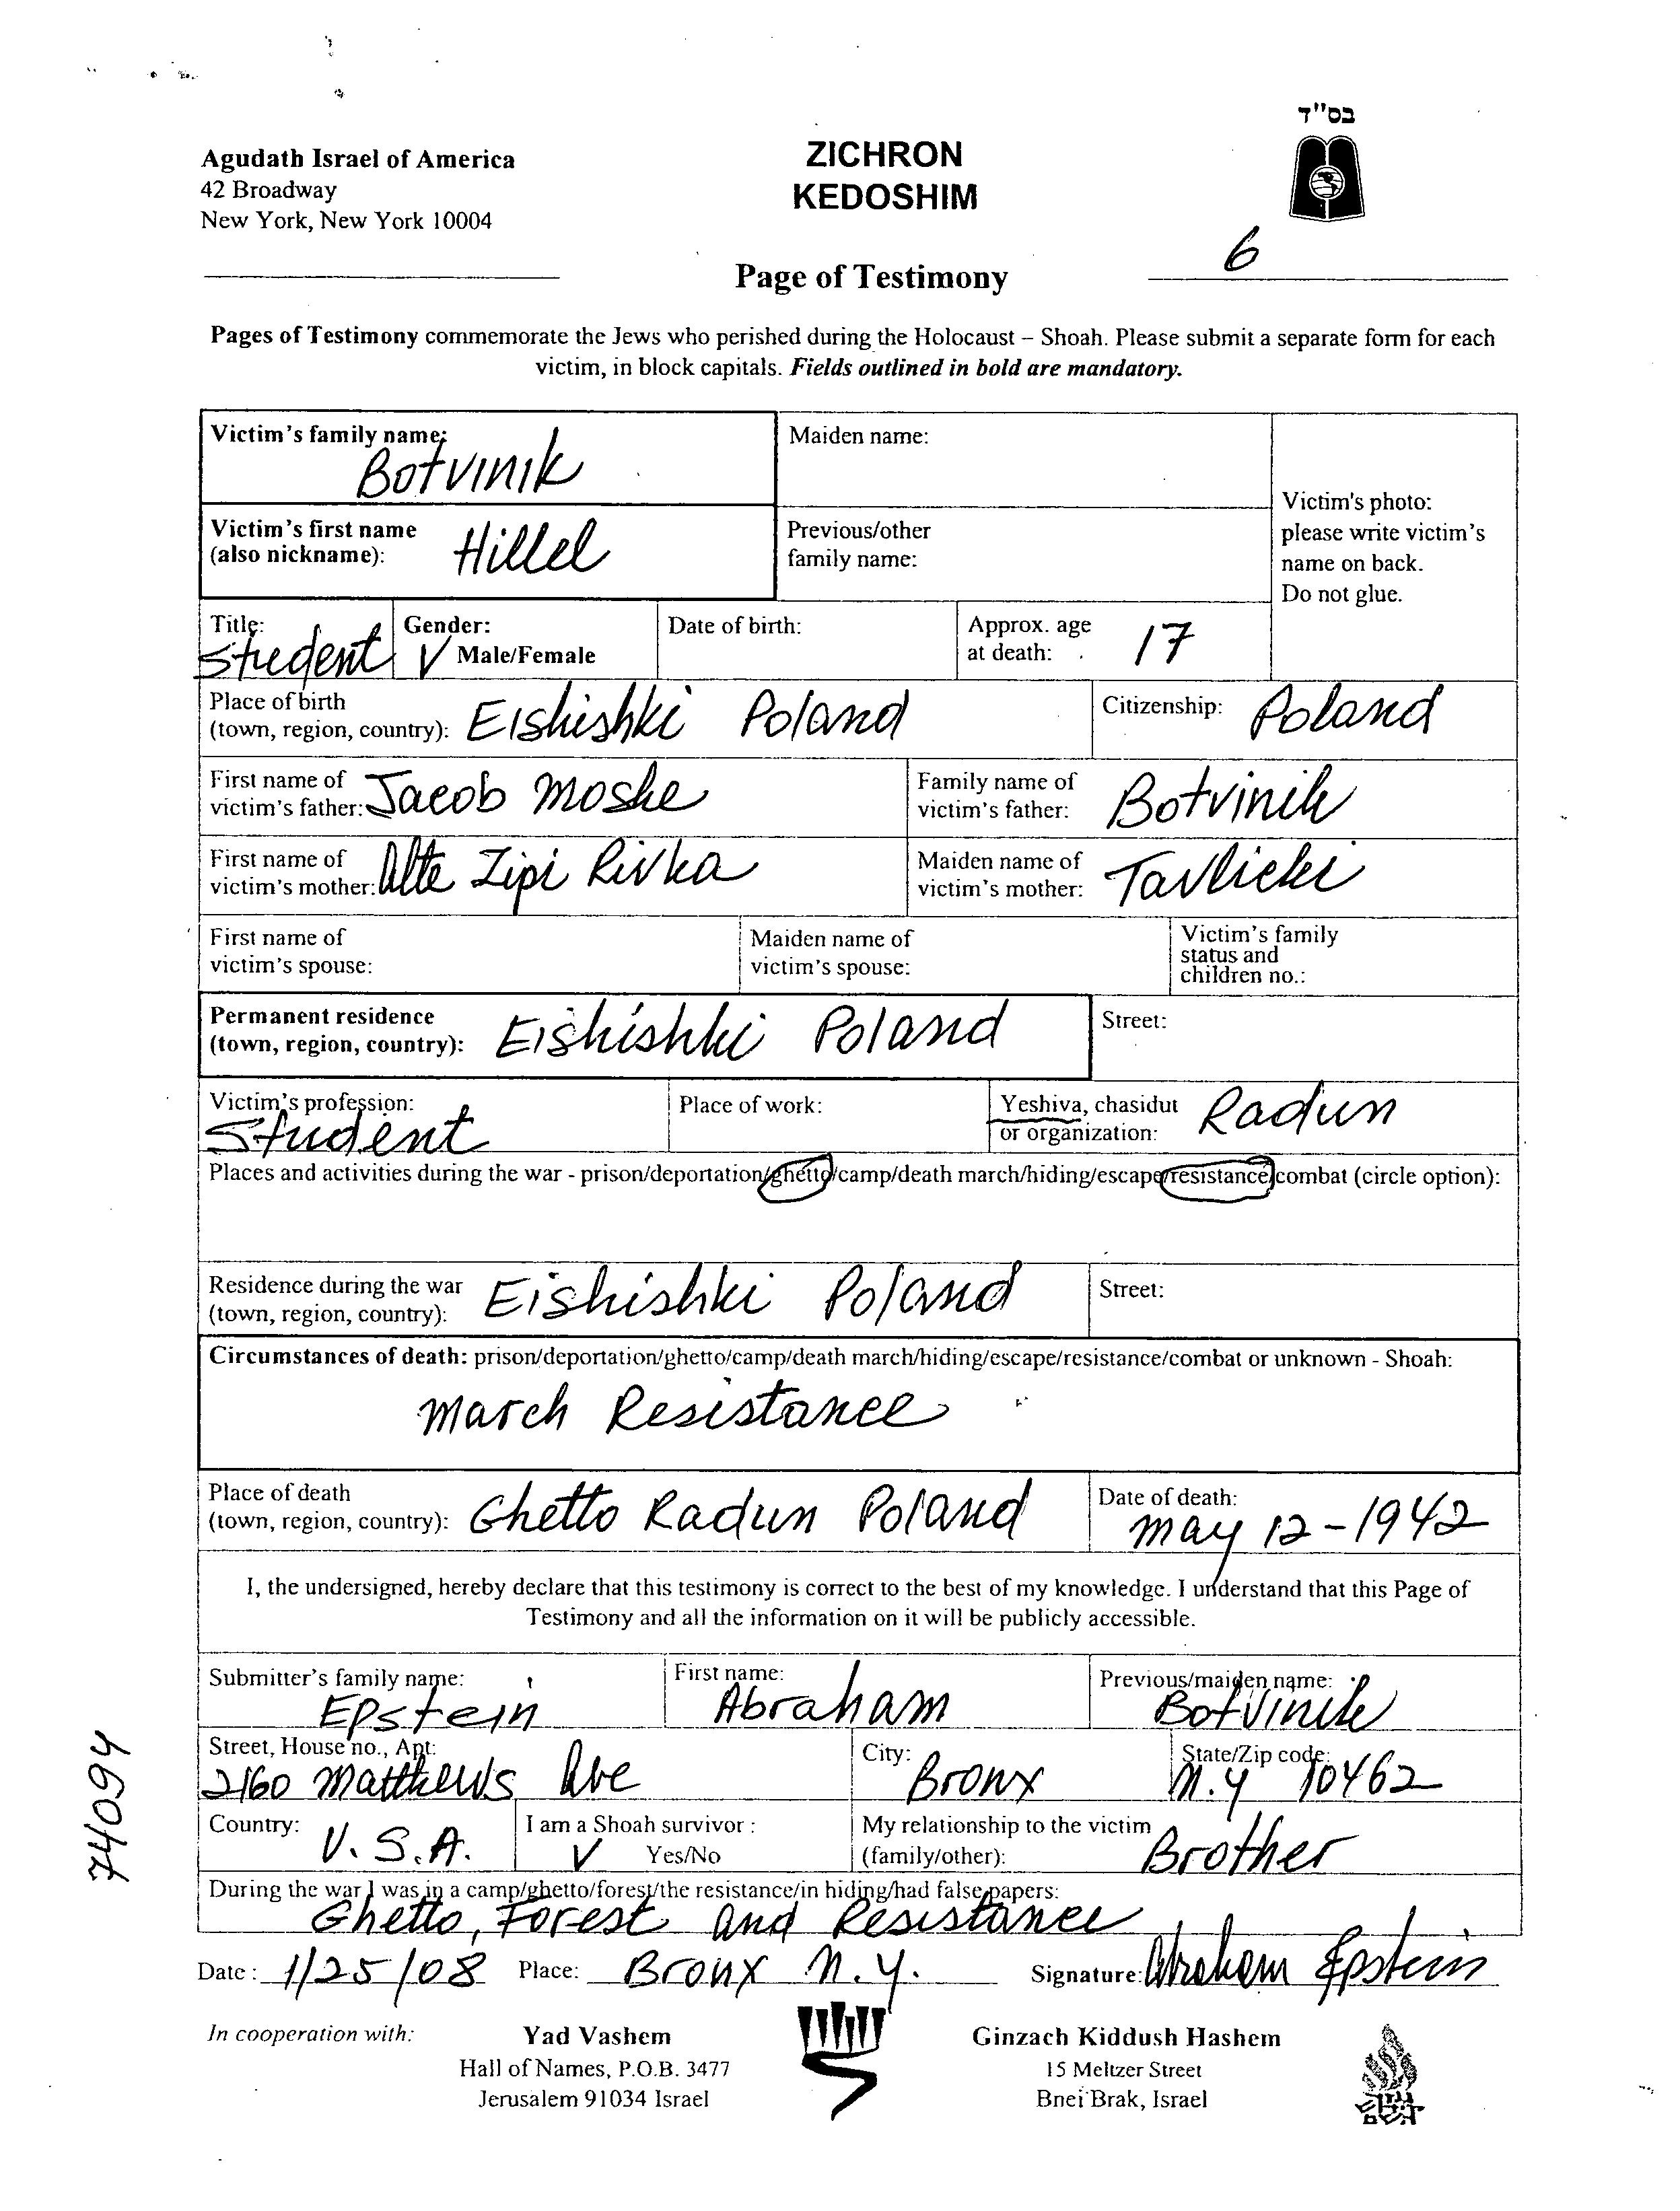 בס"ד
Agudath Israel of America
42 Broadway
New York, New York 10004
ZICHRON
KEDOSHIM
6
Page of Testimony
Pages of Testimony commemorate the Jews who perished during the Holocaust – Shoah. Please submit a separate form for each
victim, in block capitals. Fields outlined in bold are mandatory.
Victim's family name: Botvinik
Maiden name:
Victim's photo:
please write victim's
name on back.
Do not glue.
Victim's first name
(also nickname): Hillel
Previous/other
family name:
Title: Student
Gender:
V Male/Female
Date of birth:
Approx. age
at death: 17
Place of birth
(town, region, country): Eishishki Poland
Citizenship: Poland
First name of
victim's father: Jacob Moshe
Family name of
victim's father: Botvinik
First name of
victim's mother: Alte Zipi Rivka
Maiden name of
victim's mother: Tavlicki
First name of
victim's spouse:
Maiden name of
victim's spouse:
Victim's family
status and
children no.:
Permanent residence
(town, region, country): Eishishki Poland
Street:
Victim's profession:
Student
Place of work:
Yeshiva, chasidut
or organization: Radun
Places and activities during the war - prison/deportation/ghetto/camp/death march/hiding/escape/resistance/combat (circle option):
Residence during the war
(town, region, country): Eishishki Poland
Street:
Circumstances of death: prison/deportation/ghetto/camp/death march/hiding/escape/resistance/combat or unknown - Shoah:
March Resistance
Place of death
(town, region, country): Ghetto Radun Poland
Date of death:
May 12-1942
I, the undersigned, hereby declare that this testimony is correct to the best of my knowledge. I understand that this Page of
Testimony and all the information on it will be publicly accessible.
Submitter's family name:
Epstein
First name:
Abraham
Previous/maiden name:
Botvinik
Street, House no., Apt:
2160 Matthews Ave
City: Bronx
State/Zip code:
N.Y 10462
Country: U.S.A.
I am a Shoah survivor :
V Yes/No
My relationship to the victim
(family/other): Brother
During the war I was in a camp/ghetto/forest/the resistance/in hiding/had false papers:
Ghetto, Forest and Resistance
Date : 1/25/08 Place: Bronx N.Y. Signature: Abraham Epstein
In cooperation with:
Yad Vashem
Hall of Names, P.O.B. 3477
Jerusalem 91034 Israel
Ginzach Kiddush Hashem
15 Meltzer Street
Bnei Brak, Israel
74094